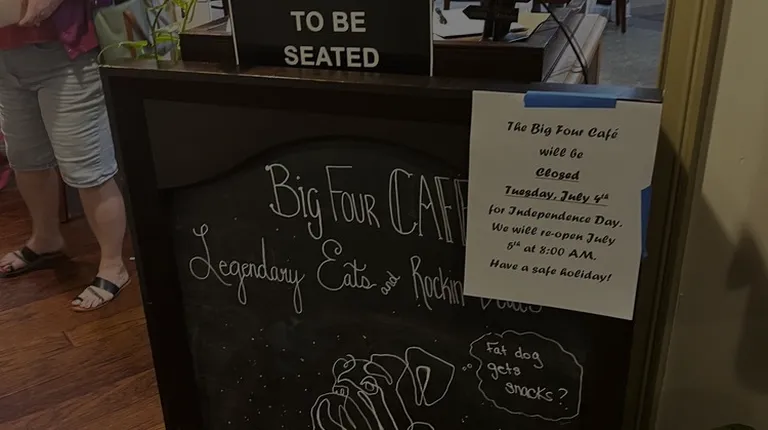 TO BE
SEATED
The Big Four Café
will be
Closed
Tuesday, July 4th
for Independence Day.
We will re-open July
5th at 8:00 AM.
Have a safe holiday!
Big Four CAFE
Legendary Eats and Rockin
Fat dog
gets
snacks?